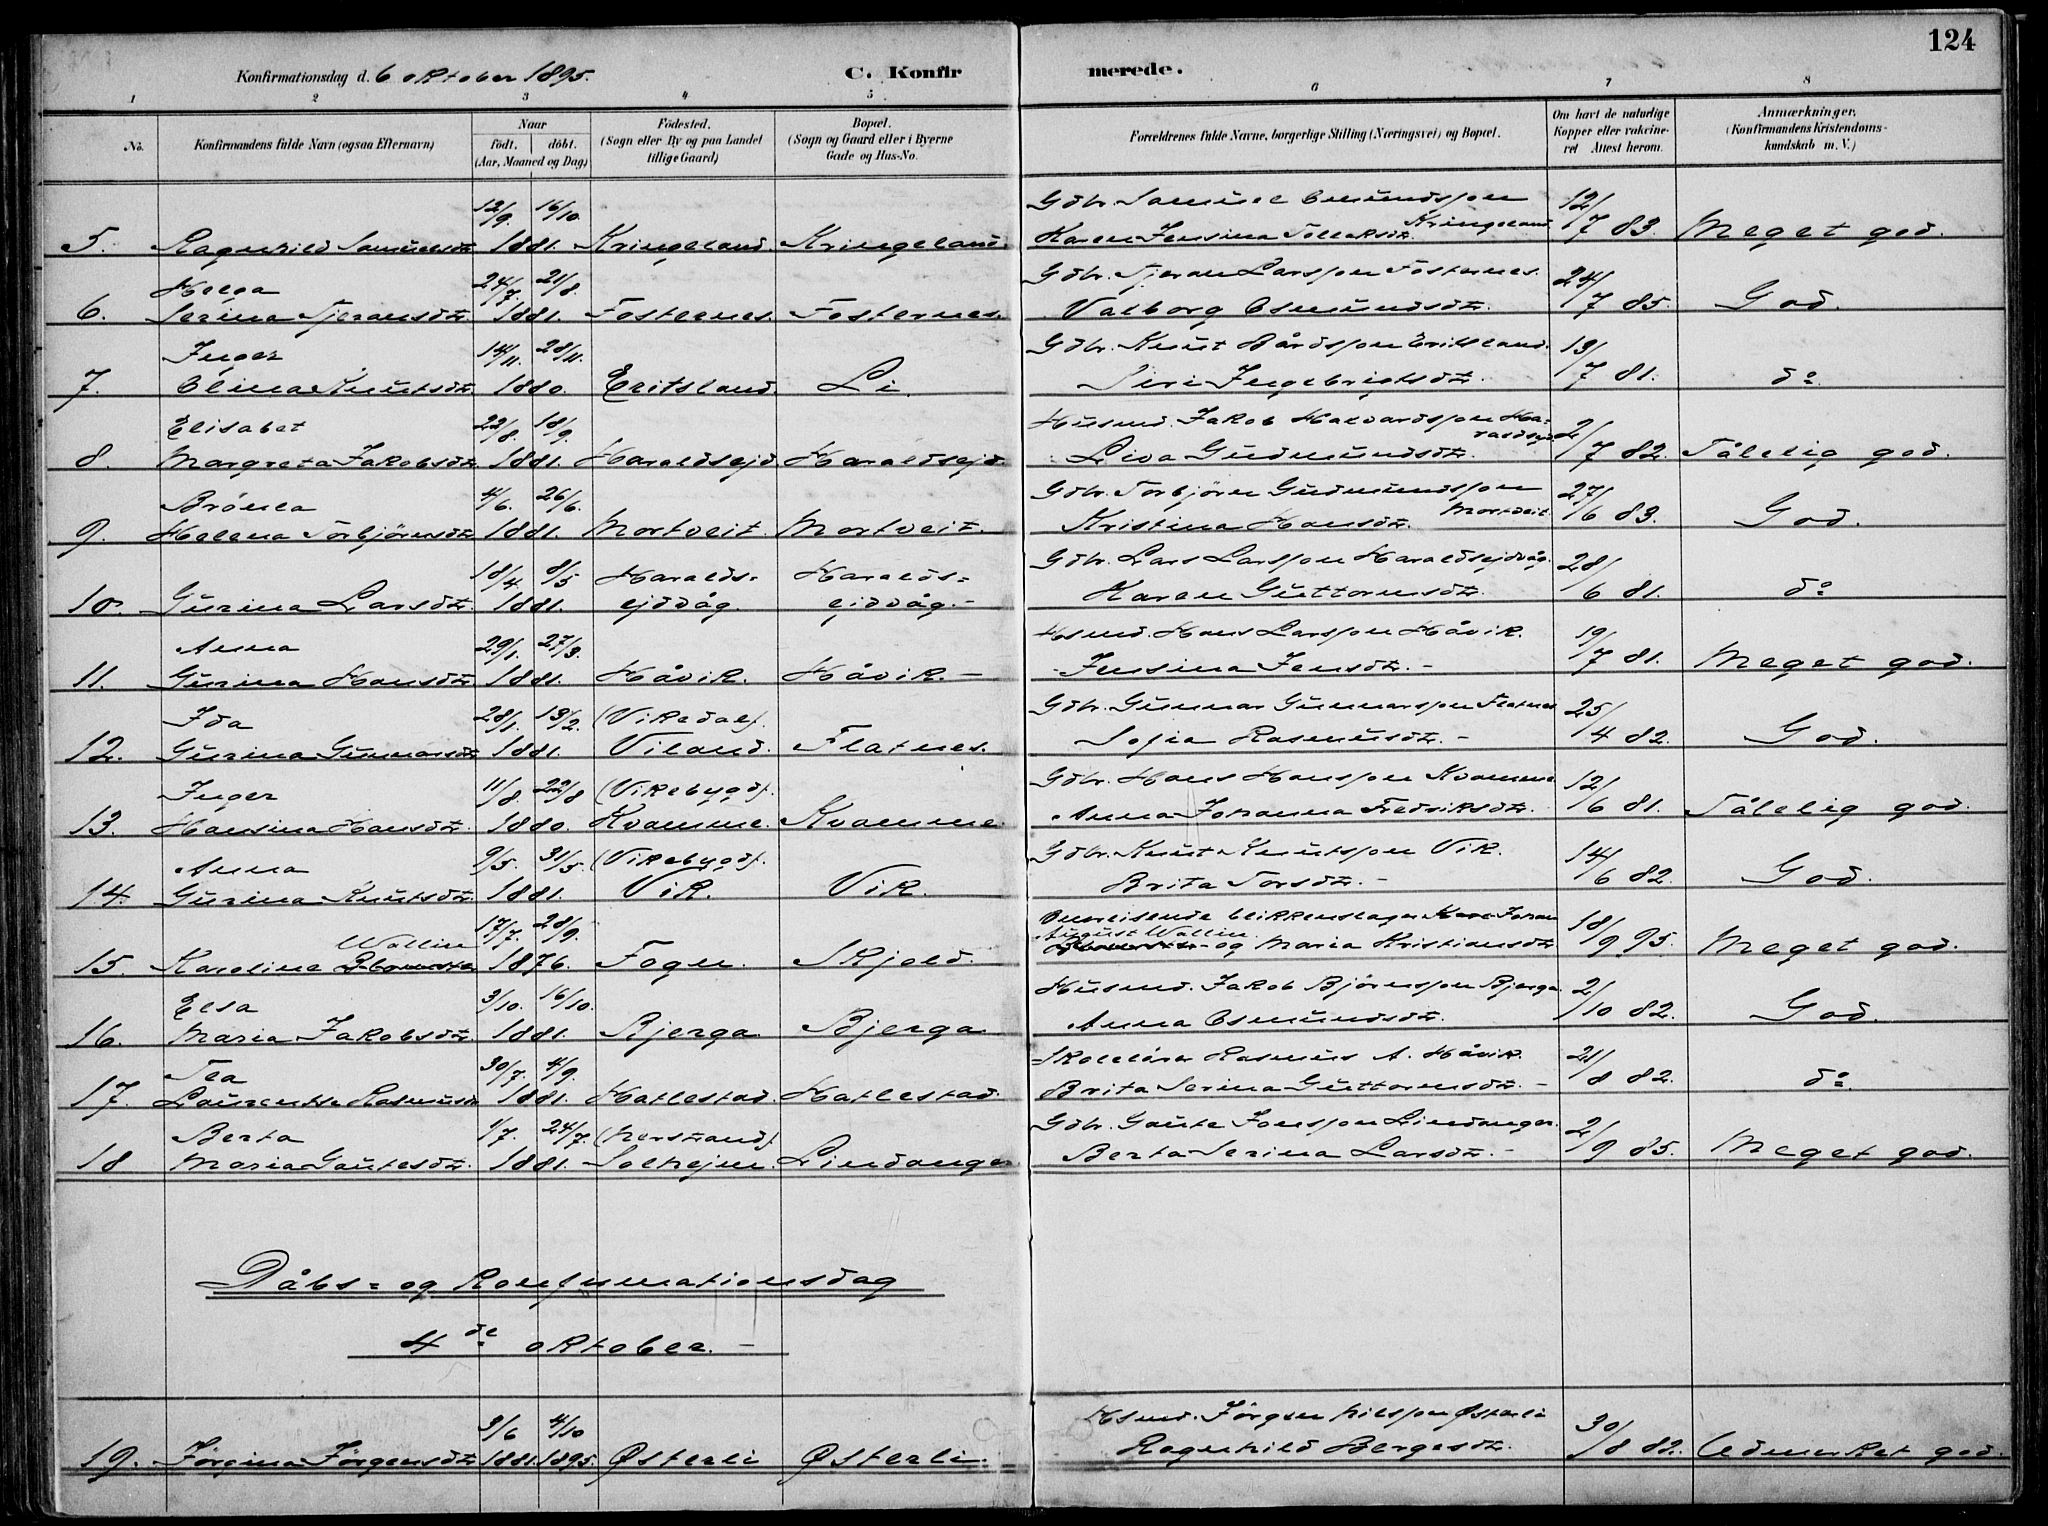 124
Konfirmationsdag d. 6 oktober 1895. C. Konfirmerede.
1 2 3 4 5 6 7 8
No. Konfirmandens fulde Navn (ogsaa Efternavn) Naar født. døbt. (Aar, Maaned og Dag) Fødested. (Sogn eller By og paa Landet tillige Gaard) Bopæl. (Sogn og Gaard eller i Byerne Gade og Hus-No. Forældrenes fulde Navne, borgerlige Stilling (Næringsvei) og Bopæl. Om havt de naturlige Kopper eller vakcineret Attest herom. Anmærkninger. (Konfirmandens Kristendomskundskab m. V.)
12/9. 16/10. Gdbr. Samuel Osmundsson Kringeland 12/
5. Ragnhild Samuelsdtr. 1881. Kringeland. Kringeland. Karen Jensina Tollaksdtr. 7 83. Meget god.
Helga 24/7. 21/8. Gdbr. Tjeran Larsson Fosternes. 24/
6. Serina Tjeransdtr. 1881. Fosternes. Fosternes. Valborg Osmundsdtr. 7 85. God.
Inger 14/11. 28/11. Gdbr. Knut Bårdsson Eritsland. 13/
7. Olina Knutsdtr. 1880. Eritsland. Li. Siri Ingebrigtsdtr. 7 81. do.
Elisabet 22/8. 18/9. Husmd. Jakob Halvardsson Haraldsejd 2/
8. Margreta Jakobsdtr. 1881. Haraldsejd. Haraldsejd. Liva Gudmundsdtr. 7 82. Tålelig god.
Brönla 4/6. 26/6. Gdbr. Torbjörn Gudmundsson Mortveit. 27/
9. Helena Torbjörnsdtr 1881. Mortveit. Mortveit. Kristina Hansdtr. 6 83. God.
18/4. 8/5 Haralds= Haralds= Gdbr. Lars Larsson Haraldsejdvåg. 28/
10. Gurina Larsdtr. 1881. ejdvåg. ejdvåg.- Karen Guttormsdtr. 6 81. do
Anna 29/1. 27/3. Hsmd. Hans Larsson Håvik. 19/
11. Gurina Hansdtr. 1881. Håvik. Håvik.- Jensina Jensdtr.- 7 81. Meget god.
Ida 28/1. 13/2. (Vikedal). Gdbr. Gunnar Gunnarsson Flatnes 25/
12. Gurina Gunnarsdtr 1881. Viland. Flatnes. Sofia Rasmusdtr.- 4 82. God.
Inger 11/8. 22/8 (Vikebygd). Gdbr. Hans Hansson Kvamme. 12/
13. Hansina Hansdtr. 1880. Kvamme. Kvamme. Anna Johanna Fredriksdtr. 6 81. Tålelig god.
Anna 9/5. 31/5. (Vikebygd). Gdbr. Knut Knutsson Vik. 14/
14. Gurina Knutsdtr. 1881. Vik. Vik. Brita Torsdtr.- 6 82. God.
Wallin 17/7. 28/9. Omreisende blikkenslager Johan 18/
15. Karoline 1876. Fogn. Skjold. August Wallin og Maria Kristiansdtr. 9 95. Meget god.
Elsa 3/10. 16/10. Husmd. Jakob Bjørnsson Bjerga 2/
16. Maria Jakobsdtr. 1881. Bjerga Bjerga Anna Osmundsdtr. 10 82. God.
Tea 30/7. 4/9. Skolelärer Rasmus A. Håvik. 21/
17. Laurentse Rasmusd. 1881. Hatlestad. Hatlestad. Brita Serina Guttormsdtr.- 8 82. do.
Berta 1/7. 24/7. (Nerstrand). Gdbr. Gaute Jonsson Lindanger. 2/
18 Maria Gautesdtr. 1881. Solhejm. Lindanger Berta Serina Larsdtr.- 9 85. Meget god.
Dåbs= og Konfirmationsdag
4de oktober.-
3/6 4/10 Hsmd. Jörgen Nilsson Østerli 30/
19. Jørgina Jörgensdtr 1881. 1895. Østerli Østerli. Ragnhild Børgesdtr. 8 82. Udmerket god.